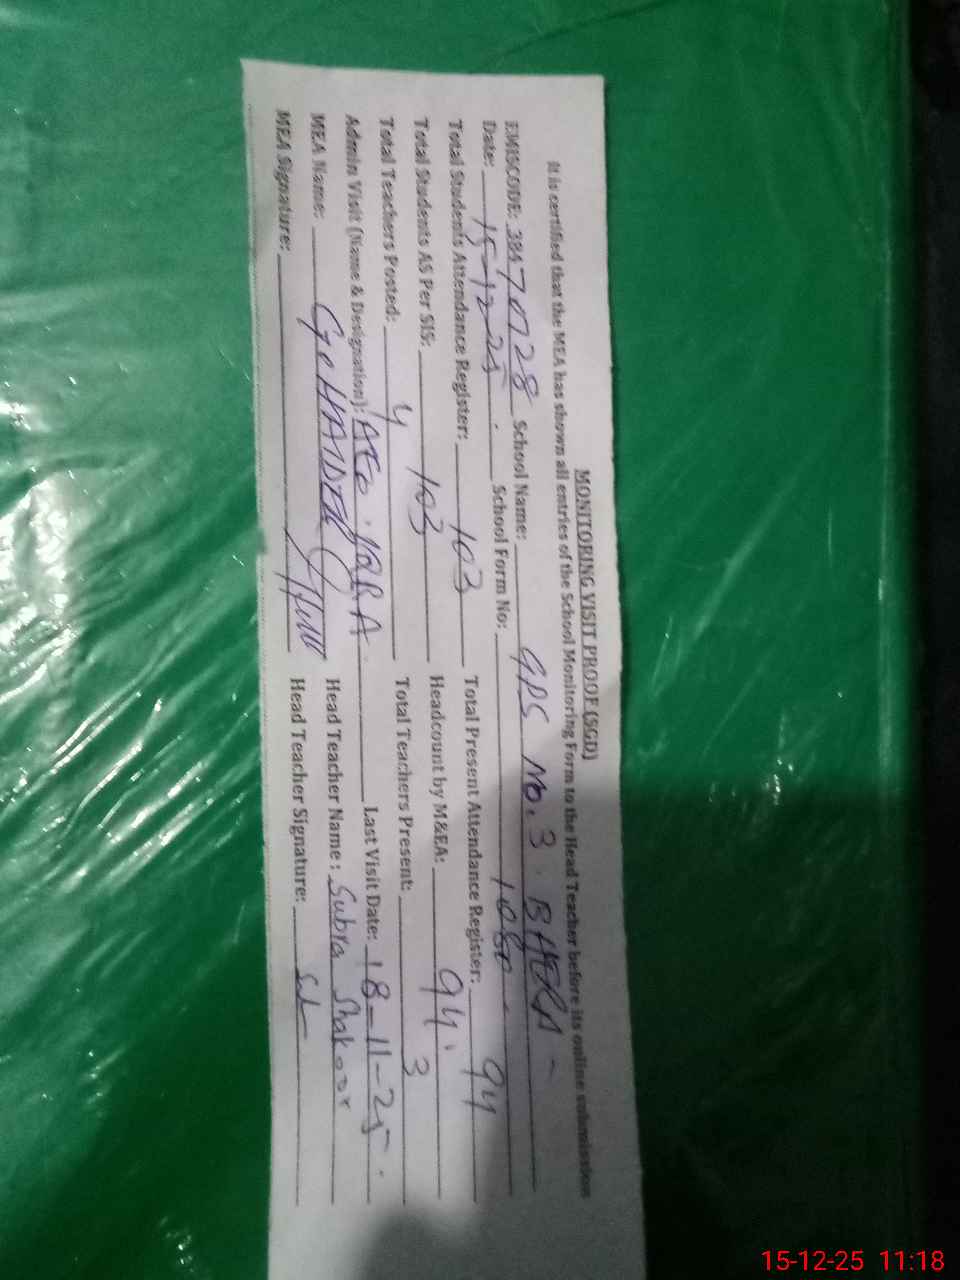 MONITORING VISIT PROOF (SGD)
It is certified that the MEA has shown all entries of the School Monitoring Form to the Head Teacher before its online submission
EMISCODE: School Name: GPS No. 3. BHERA -
Date: 15-12-25. School Form No: 1080
Total Students Attendance Register: 103 Total Present Attendance Register: 94
Total Students AS Per SIS: 103 Headcount by M&EA: 94.
Total Teachers Posted: 4 Total Teachers Present: 3
Admin Visit (Name & Designation): AEO. IQRA. Last Visit Date: 18-11-25.
MEA Name: HAIDER Head Teacher Name: Subra Shakoor
MEA Signature: Head Teacher Signature:
15-12-25 11:18